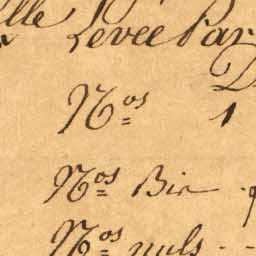 lle
Levée Par
D
N.os 1
N.os Bir
N.os nuls - -